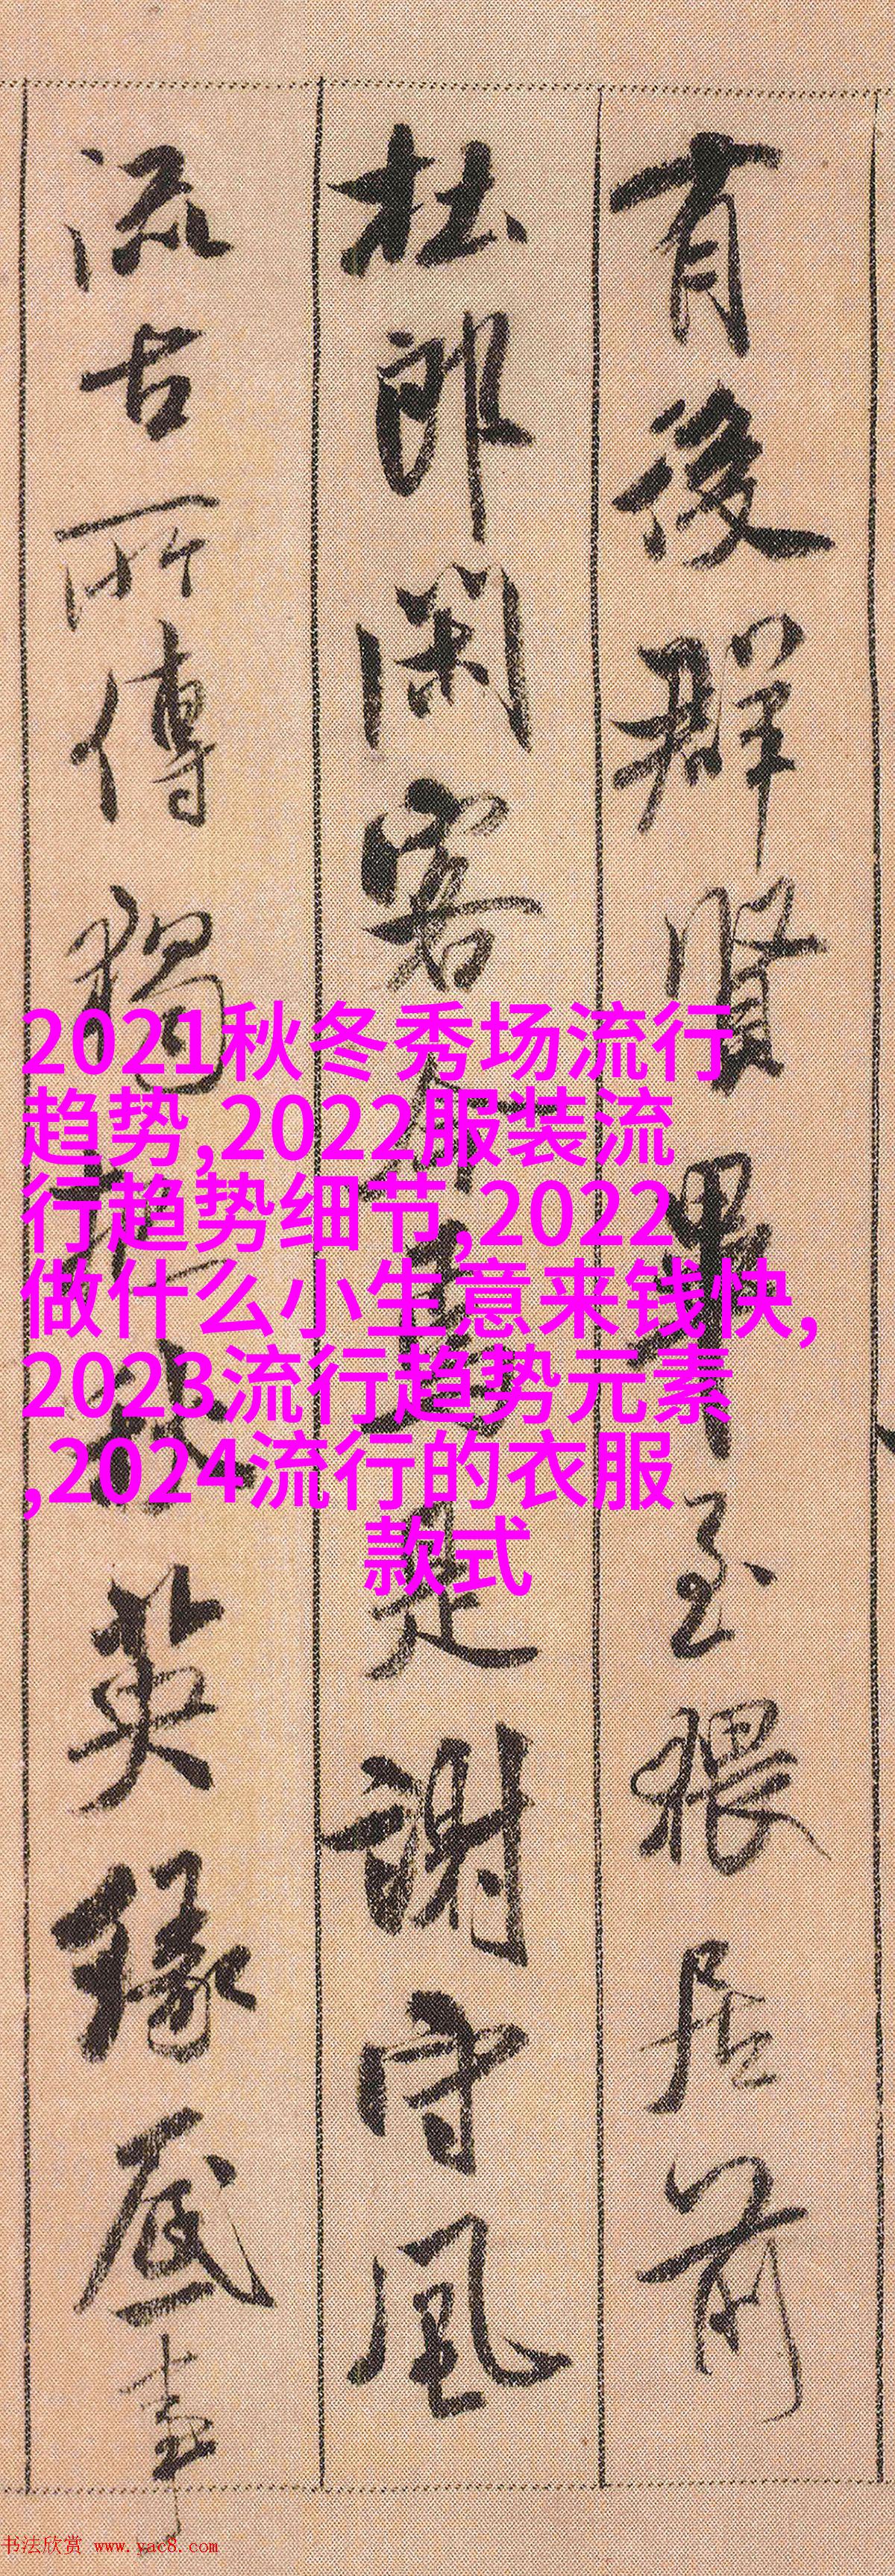 有後群賢畢至猥居前
杜郎閑客今焉是謝守風
流古所傳獨把秋英緣底事
2021秋冬秀场流行
趋势,2022服装流
行趋势细节,2022
做什么小生意来钱快,
2023流行趋势元素
,2024流行的衣服
款式
书法欣赏 www.yac8.com